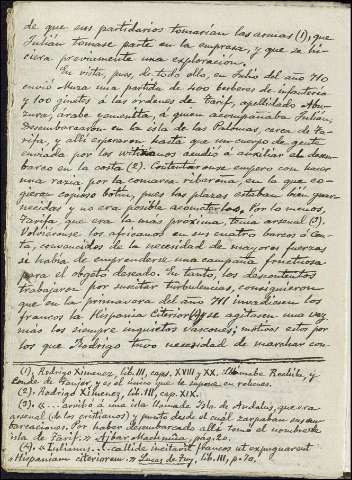 de que sus partidarios tomarían las armas (1), que
Julián tomase parte en la empresa, y que se hi-
ciera previamente una exploración.
En vista, pues, de todo ello, en Julio del año 710
envió Muza una partida de 400 berberes de infantería
y 100 ginetes á las órdenes de Tarif, apellidado Abu-
zura, árabe yemenita, á quien acompañaba Julián,
Desembarcaron en la isla de las Palomas, cerca de Ta-
rifa, y allí esperaron hasta que un cuerpo de gente
enviada por los witizanos acudió á auxiliar el desem-
barco en la costa (2). Contentáronse empero con hacer
una razia por la comarca ribereña, en la que co-
gieron copioso botín, pues las plazas estaban bien guar-
necidas y no era posible acometerlas. Por lo menos,
Tarifa, que era la más próxima, tenía arsenal (3).
Volviéronse los africanos en sus cuatro barcos á Ceu-
ta, convencidos de la necesidad de mayores fuerzas
si había de emprenderse una campaña fructuosa
para el objeto deseado. En tanto, los descontentos
trabajaron por suscitar turbulencias, consiguieron
que en la primavera del año 711 invadiesen los
francos la Hispania Citerior (4) y se agitasen una vez
más los siempre inquietos vascones; motivos estos por
los que Rodrigo tuvo necesidad de marchar con-
(1), Rodrigo Ximenez, lib. III, caps. XVIII y XX. y
Conde de Tanjer, y es el único que le supone en rehenes.
(2), Rodrigo Ximenez, lib. III, cap. XIX.
(3) «... arribó á una isla llamada Isla de Andalus, que era
arsenal (de los cristianos) y punto desde el cual zarpaban sus em-
barcaciones. Por haber desembarcado allí tomó el nombre de
isla de Tarif. » Ajbar Machmúa, pág. 20.
(4), « Iulianus... callide incitavit francos ut expugnarent
Hispaniam citeriorem. » Lucas de Tuy, lib. III, p. 70.